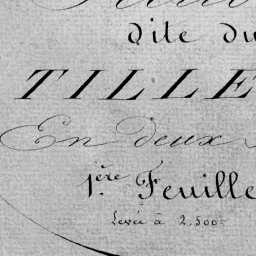 dite du
TILLE
En deux
1.ère Feuille
Levée à 2.500e